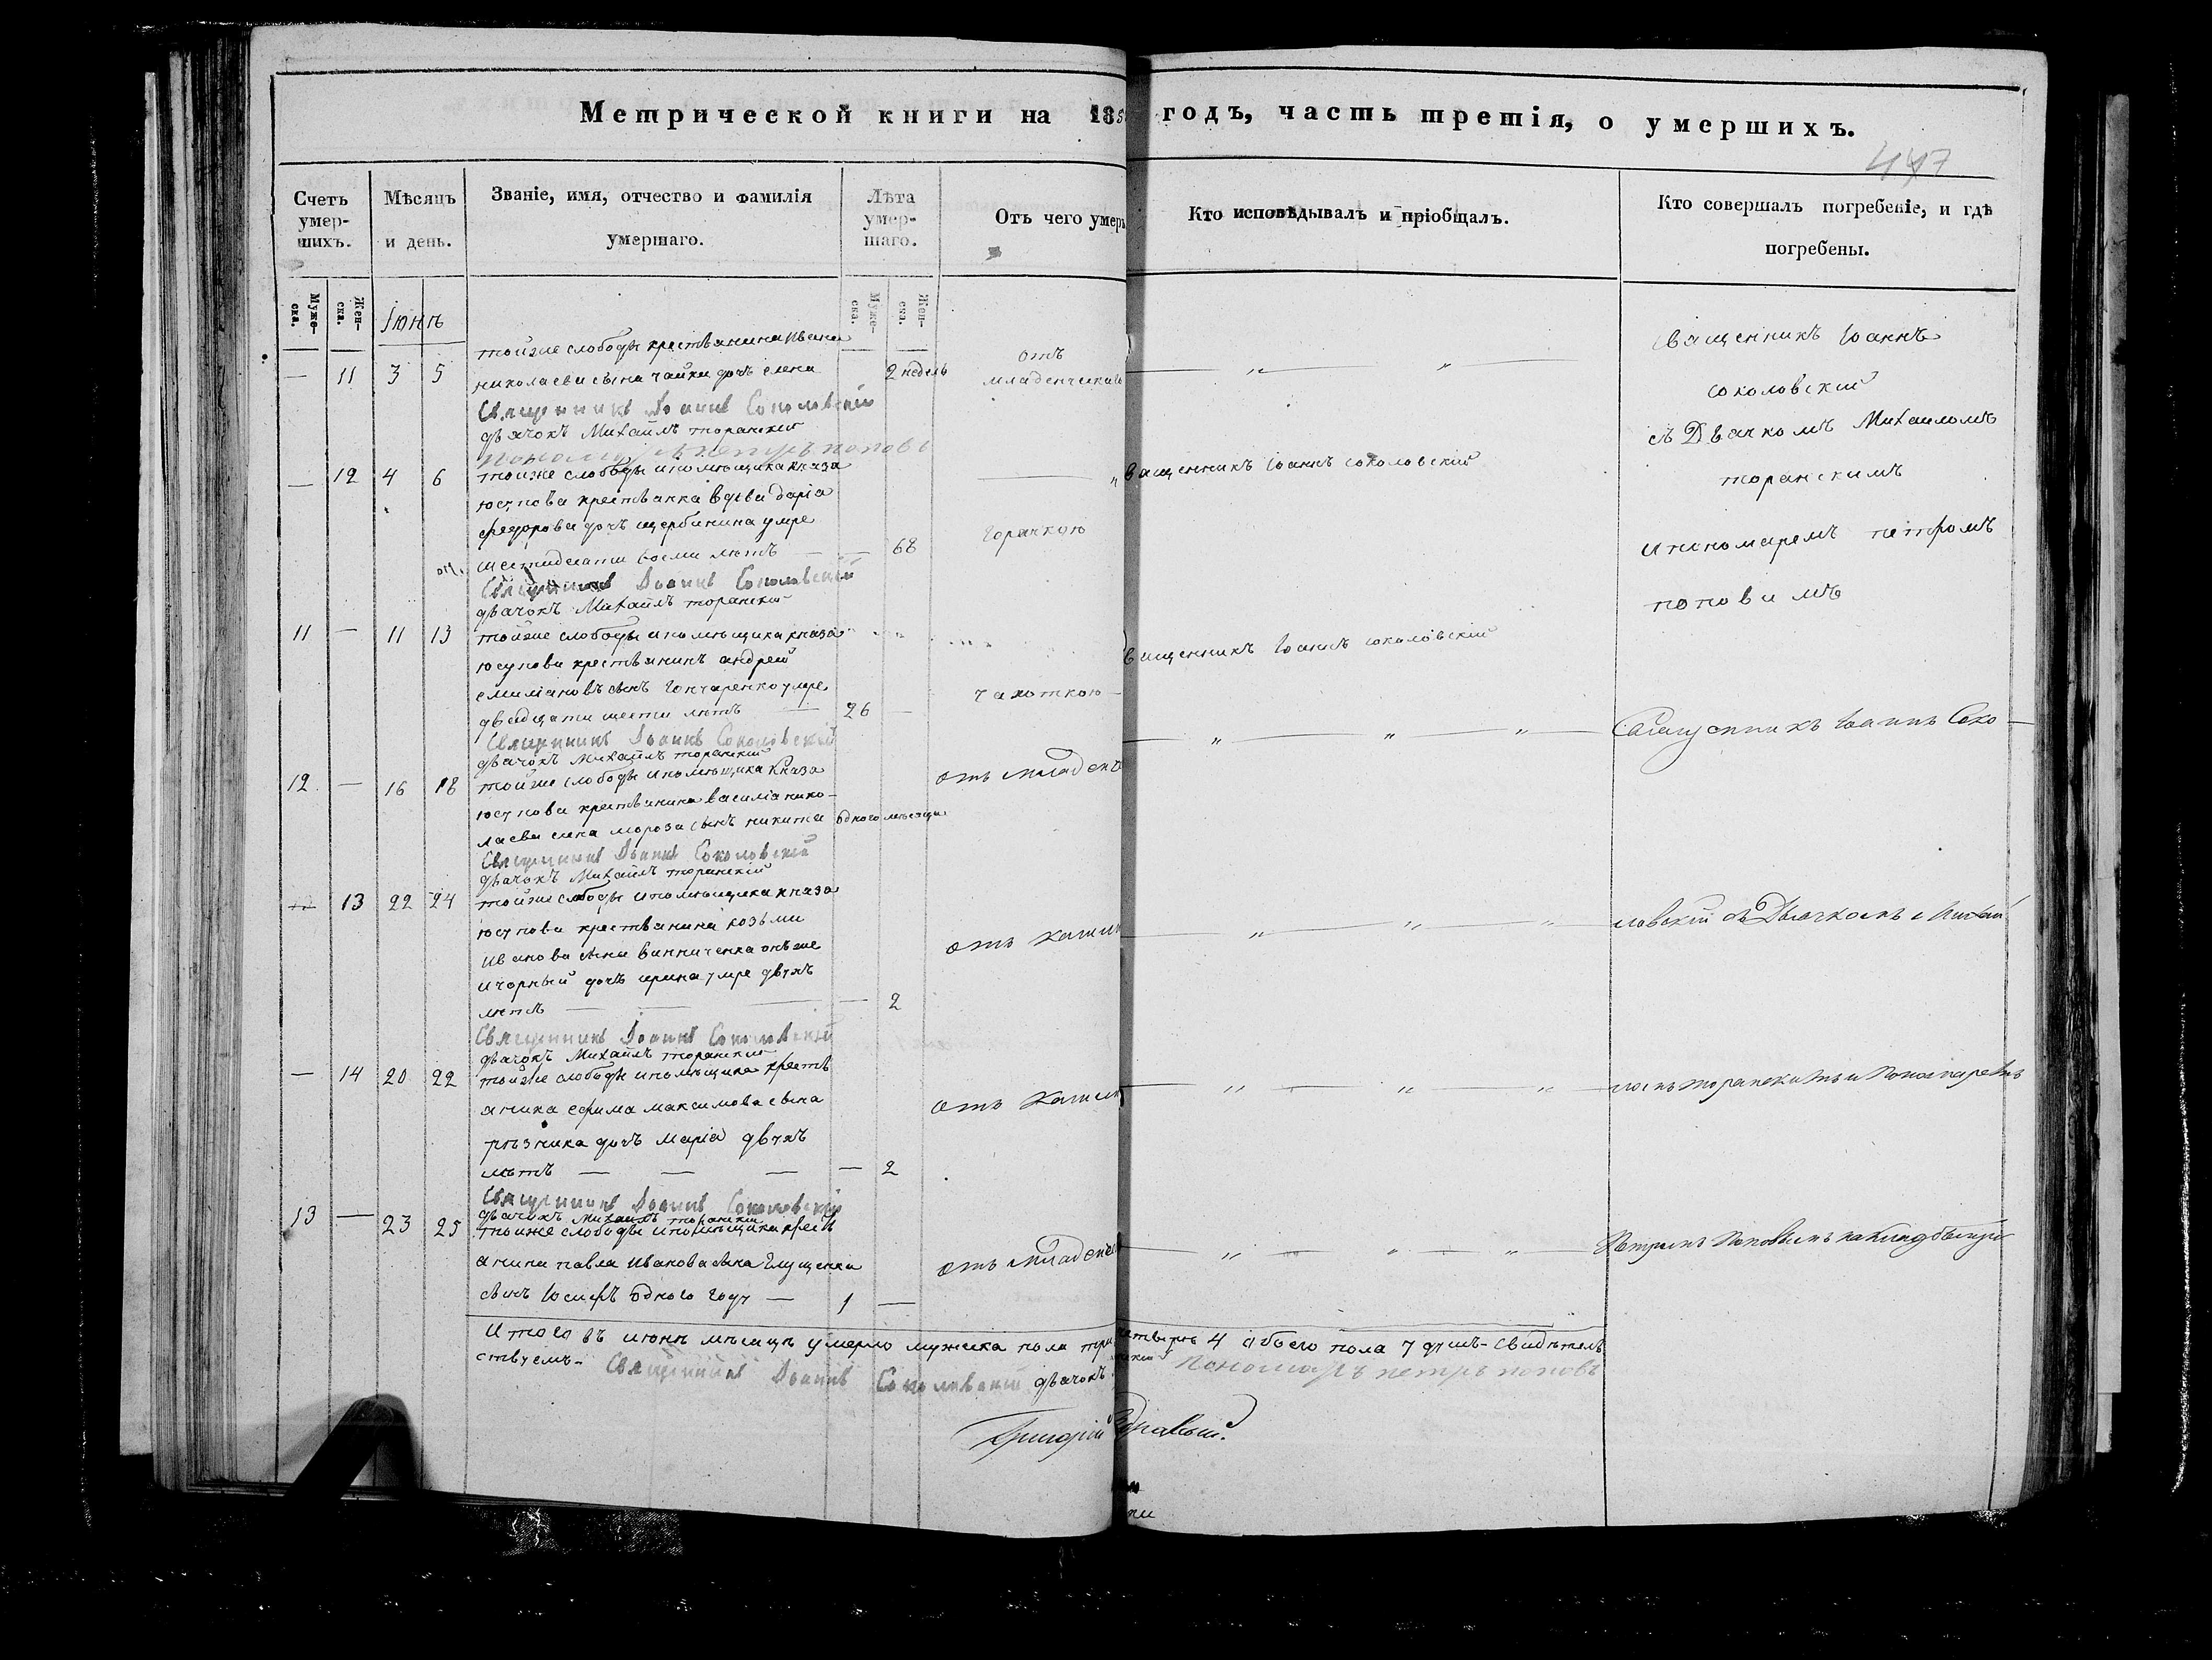 Метрической книги на 185 годъ, часть третія, о умершихъ.
447
Счетъ умер-шихъ.
Мѣсяцъ и день.
Званіе, имя, отчество и фамилія умершаго.
Лѣта умер-шаго.
Отъ чего умеръ
Кто исповѣдывалъ и пріобщалъ.
Кто совершалъ погребеніе, и гдѣ погребены.
Муже-ска.
Жен-ска.
Муже-ска.
Жен-ска.
Июнь
тойже слободы крестьянина Ивана
— 11 3 5 николаева сына чайки дочь елена 2 недель
отъ
младенческой
Священникъ Іоаннъ Соколовскій
дьячокъ Михаилъ торанский
пономарь петръ поповъ
— 12 4 6 тойже слободы и помѣщика князя
юсупова крестьянка вдова дарія
федорова дочь щербинина умре
шестидесяти восми лѣтъ — — 68
горячкою
Священникъ Іоаннъ соколовскій
Священникъ Іоаннъ Соколовскій
дьячокъ Михаилъ торанский
11 — 11 13 тойже слободы и помѣщика князя
юсупова крестьянинъ андрей
емиліановъ сынъ гончаренко умре
двадцати шести лѣтъ — 26 —
чахоткою
Священникъ Іоаннъ соколовскій
Священникъ Іоаннъ Соколовскій
дьячокъ Михаилъ торанский
12 — 16 18 тойже слободы и помѣщика князя
юсупова крестьянина василіа нико-
лаева сына мороза сынъ никита одного месяца
отъ младенч
Священникъ Іоаннъ Соколовскій
дьячокъ Михаилъ торанский
13 22 24 тойже слободы и помѣщика князя
юсупова крестьянина козьмы
иванова сына винниченка онъже
и чорный дочь ирина умре двухъ
лѣтъ — — — — 2
отъ кашля
Священникъ Іоаннъ Соколовскій
дьячокъ Михаилъ торанский
— 14 20 22 тойже слободы и помѣщика кресть
янина ефима максимова сына
рѣзника дочь Марія двухъ
лѣтъ — — — — 2
отъ кашля
Священникъ Іоаннъ Соколовскій
дьячокъ Михаилъ торанский
13 — 23 25 тойже слободы и помѣщика крест
янина павла иванова сына глущенка
сынъ Іосифъ одного году — 1 —
отъ младенч
Священникъ Іоаннъ
соколовский
съ Дьячкомъ Михаиломъ
торанскимъ
и пономаремъ петромъ
поповымъ
Священникъ Іоаннъ Соко-
ловскій съ Дьячкомъ Михаи
ломъ торанскимъ и Пономаремъ
Петромъ Поповымъ на кладбищѣ
Итого въ июнѣ мѣсяцѣ умерло мужеска пола три четверо 4 обоего пола 7 душъ- свидѣтель
ствуемъ- Священникъ Іоаннъ Соколовскій дьячокъ Пономарь петръ поповъ
Григорій